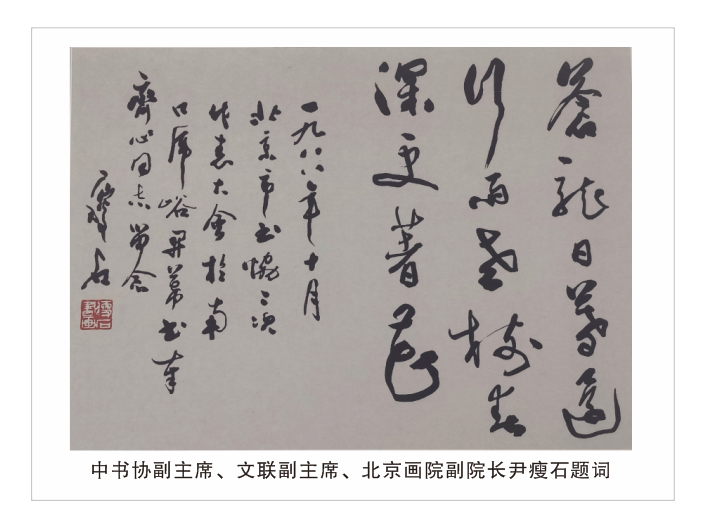 蒼龍日暮還
行雨老樹春
深更著花
一九八八年十月
北京市书协二次
代表大會於南
口虎峪开幕书奉
齊心同志留念
瘦石
中书协副主席、文联副主席、北京画院副院长尹瘦石题词